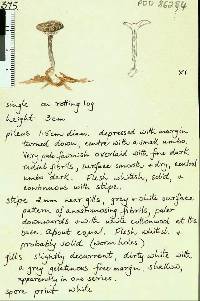 375
PDD 86284
x1
single on rotting log
height 3cm
pileus 1.8cm diam. depressed with margin
turned down, centre with a small umbo.
Very pale fawnish overlaid with fine dark
radial fibrils, surface smooth & dry, central
umbo dark. Flesh whitish, solid, &
continuous with stipe.
stipe 2mm near gills, grey & white surface
pattern of anastomosing fibrils, paler
downwards & with white cottonwool at the
base. About equal. Flesh whitish &
probably solid (worm holes)
gills slightly decurrent, dirty white with
a grey gelatinous free margin, shallow,
apparently in one series.
spore print white